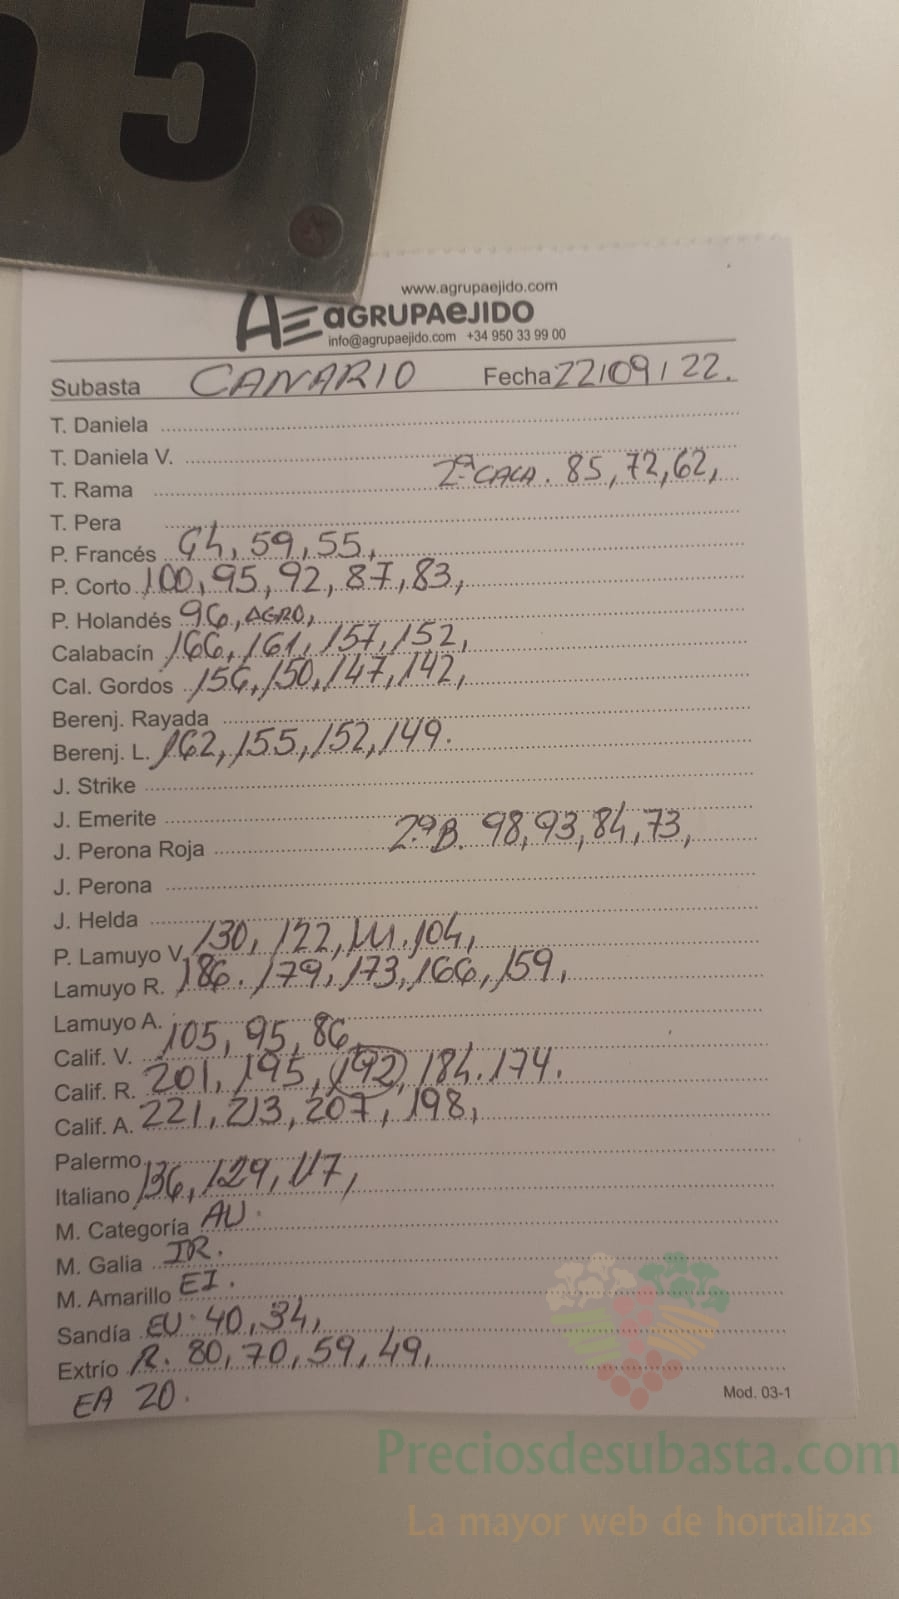 5
www.agrupaejido.com
AE aGRUPAeJIDO
info@agrupaejido.com +34 950 33 99 00
Subasta CANARIO Fecha 22/09/22.
T. Daniela
T. Daniela V.
T. Rama 2ª CALA. 85, 72, 62,
T. Pera
P. Francés 64, 59, 55,
P. Corto 100, 95, 92, 87, 83,
P. Holandés 96, AGRO,
Calabacín 166, 161, 157, 152,
Cal. Gordos 156, 150, 147, 142,
Berenj. Rayada
Berenj. L. 162, 155, 152, 149.
J. Strike
J. Emerite
J. Perona Roja 2ª B. 98, 93, 84, 73,
J. Perona
J. Helda
P. Lamuyo V. 130, 122, 111. 104,
Lamuyo R. 186. 179, 173, 166, 159,
Lamuyo A.
Calif. V. 105, 95, 86,
Calif. R. 201, 195, 192, 184. 174.
Calif. A. 221, 213, 207, 198,
Palermo
Italiano 136, 129, 117,
M. Categoría AU.
M. Galia IR.
M. Amarillo EI.
Sandía EU. 40, 34,
Extrío R. 80, 70, 59, 49,
EA 20.
Mod. 03-1
Preciosdesubasta.com
La mayor web de hortalizas